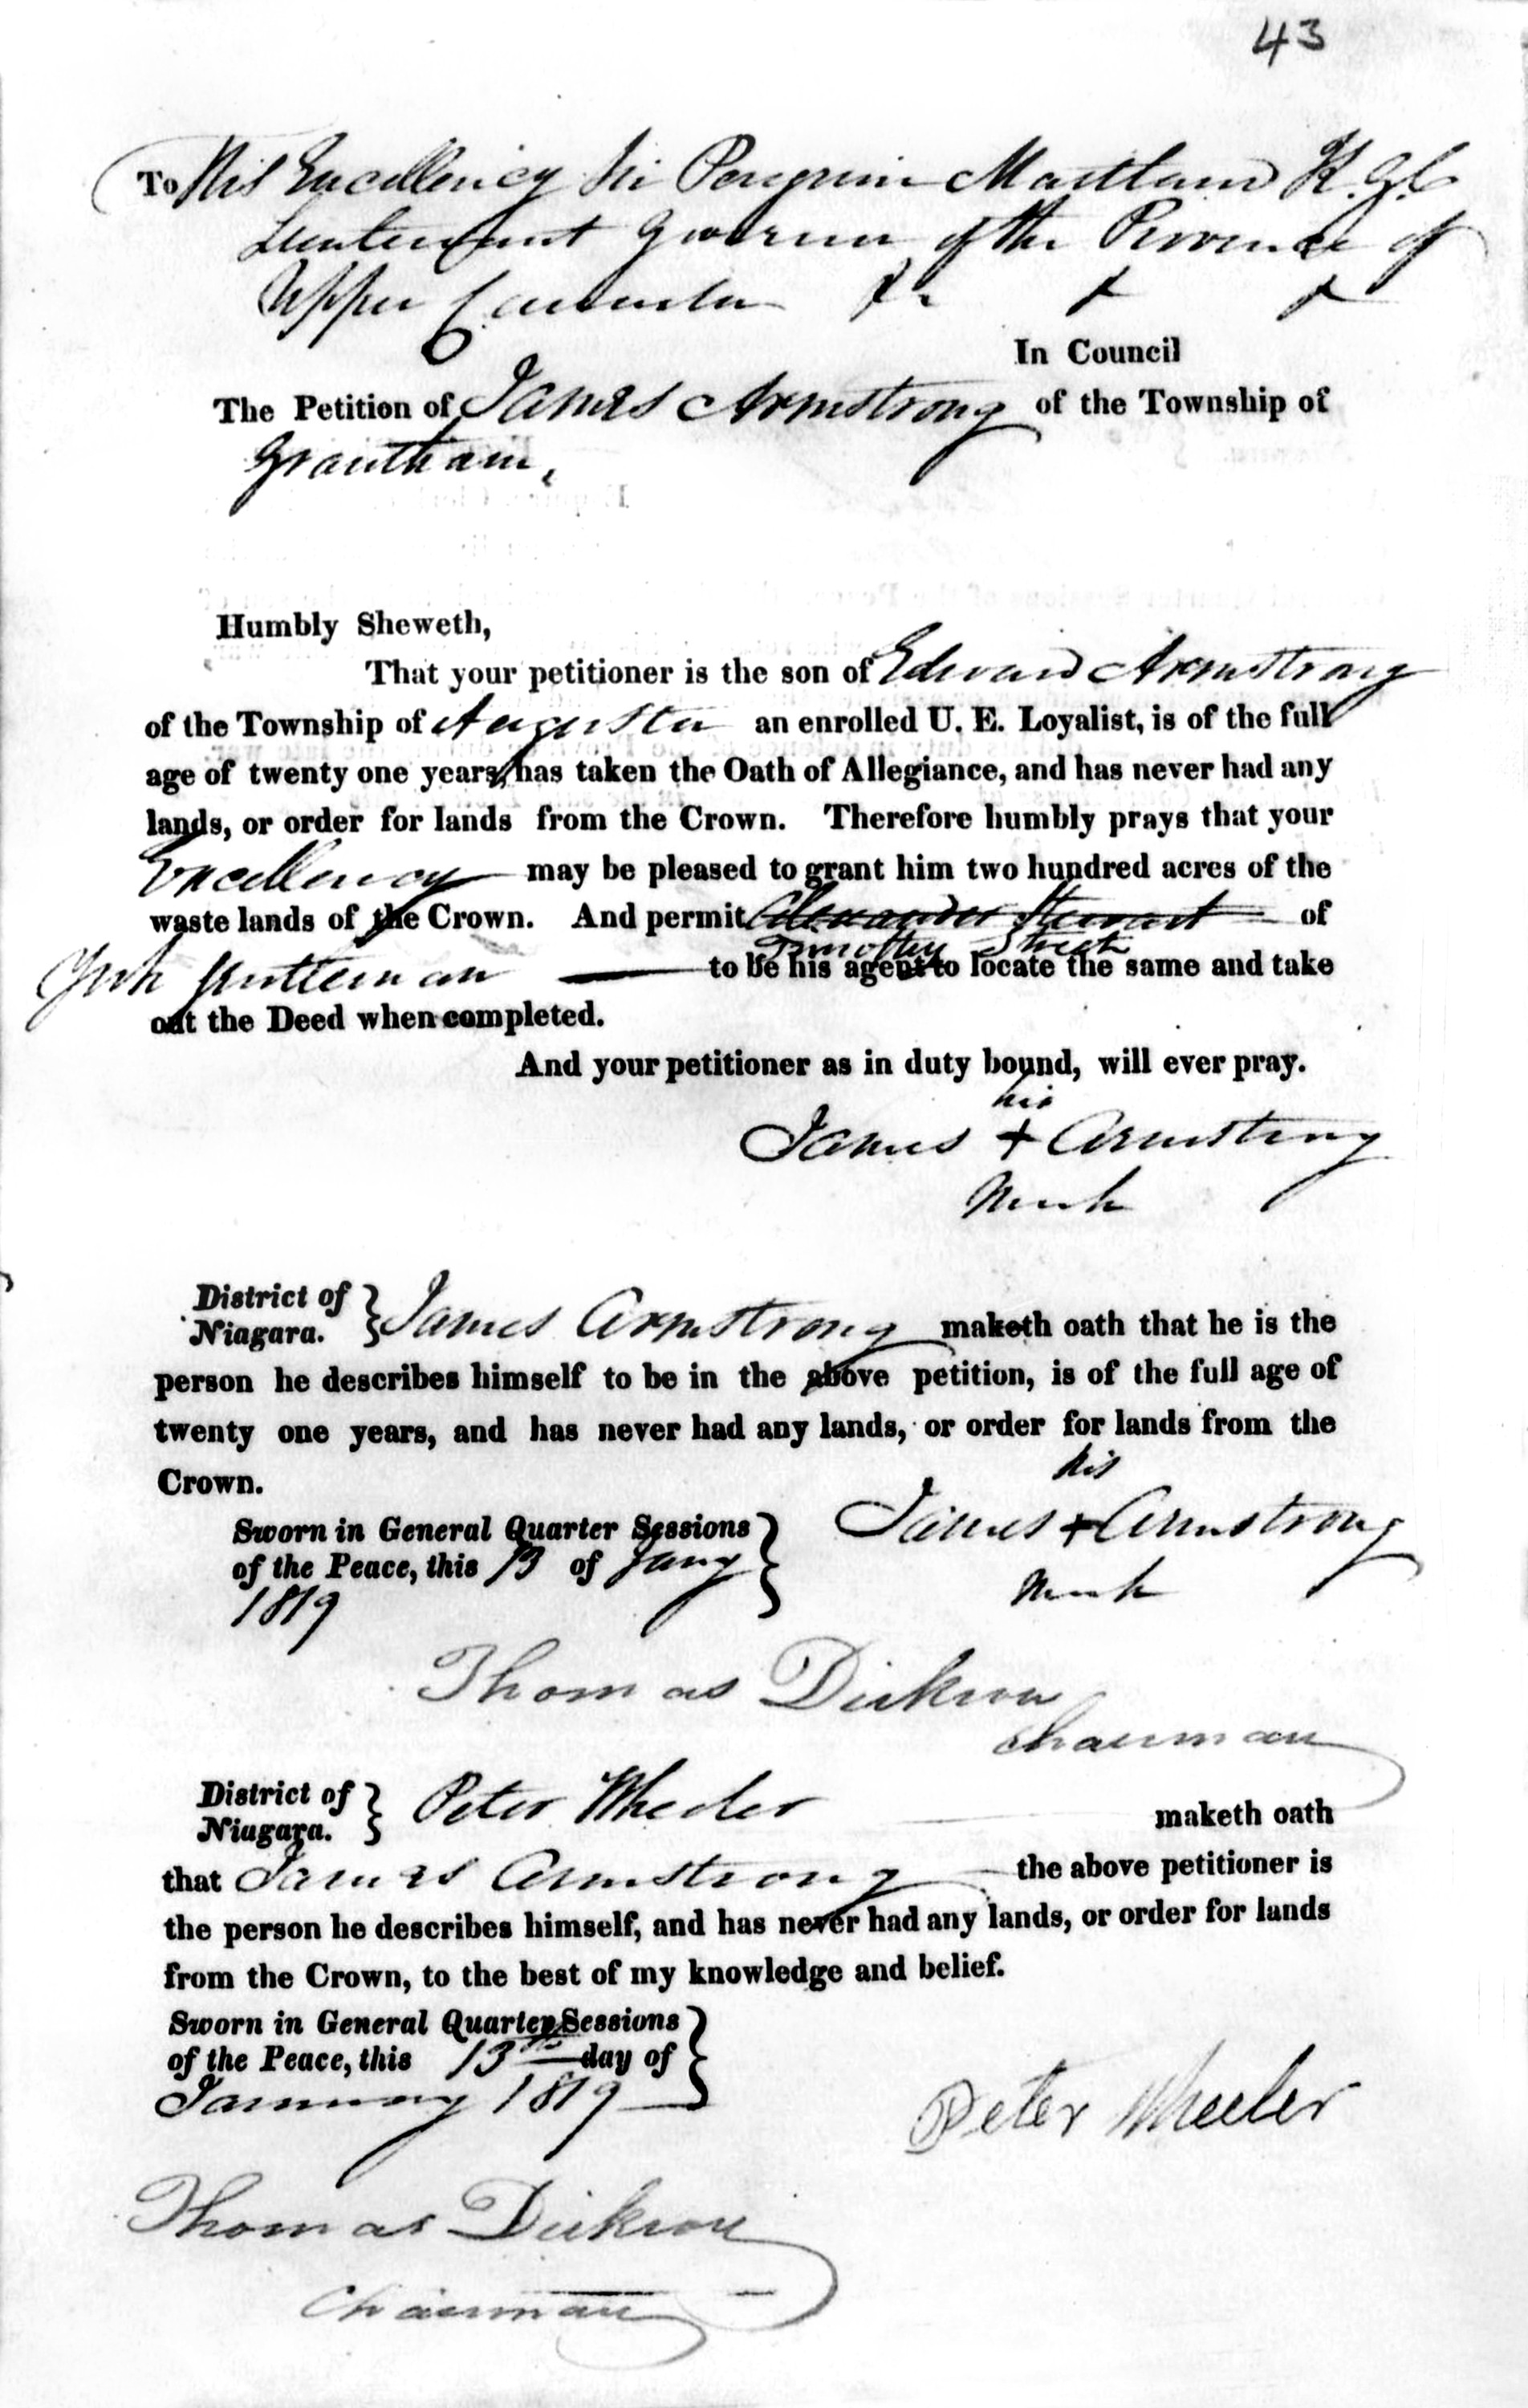 43
To His Excellency Sir Peregrine Maitland K.G.C
Lieutenant Governor of the Province of
Upper Canada &c & &
In Council
The Petition of James Armstrong of the Township of
Grantham,
Humbly Sheweth,
That your petitioner is the son of Edward Armstrong
of the Township of Augusta an enrolled U. E. Loyalist, is of the full
age of twenty one years, has taken the Oath of Allegiance, and has never had any
lands, or order for lands from the Crown. Therefore humbly prays that your
Excellency may be pleased to grant him two hundred acres of the
waste lands of the Crown. And permit Alexander Stewart of
Timothy Street
York Gentleman to be his agent to locate the same and take
out the Deed when completed.
And your petitioner as in duty bound, will ever pray.
his
James + Armstrong
Mark
District of
Niagara. } James Armstrong maketh oath that he is the
person he describes himself to be in the above petition, is of the full age of
twenty one years, and has never had any lands, or order for lands from the
Crown.
his
Sworn in General Quarter Sessions } James + Armstrong
of the Peace, this 13 of Jany
Mark
1819
Thomas Dickson
Chairman
District of
Niagara. } Peter Wheeler maketh oath
that James Armstrong the above petitioner is
the person he describes himself, and has never had any lands, or order for lands
from the Crown, to the best of my knowledge and belief.
Sworn in General Quarter Sessions
of the Peace, this 13th day of }
January 1819
Peter Wheeler
Thomas Dickson
Chairman